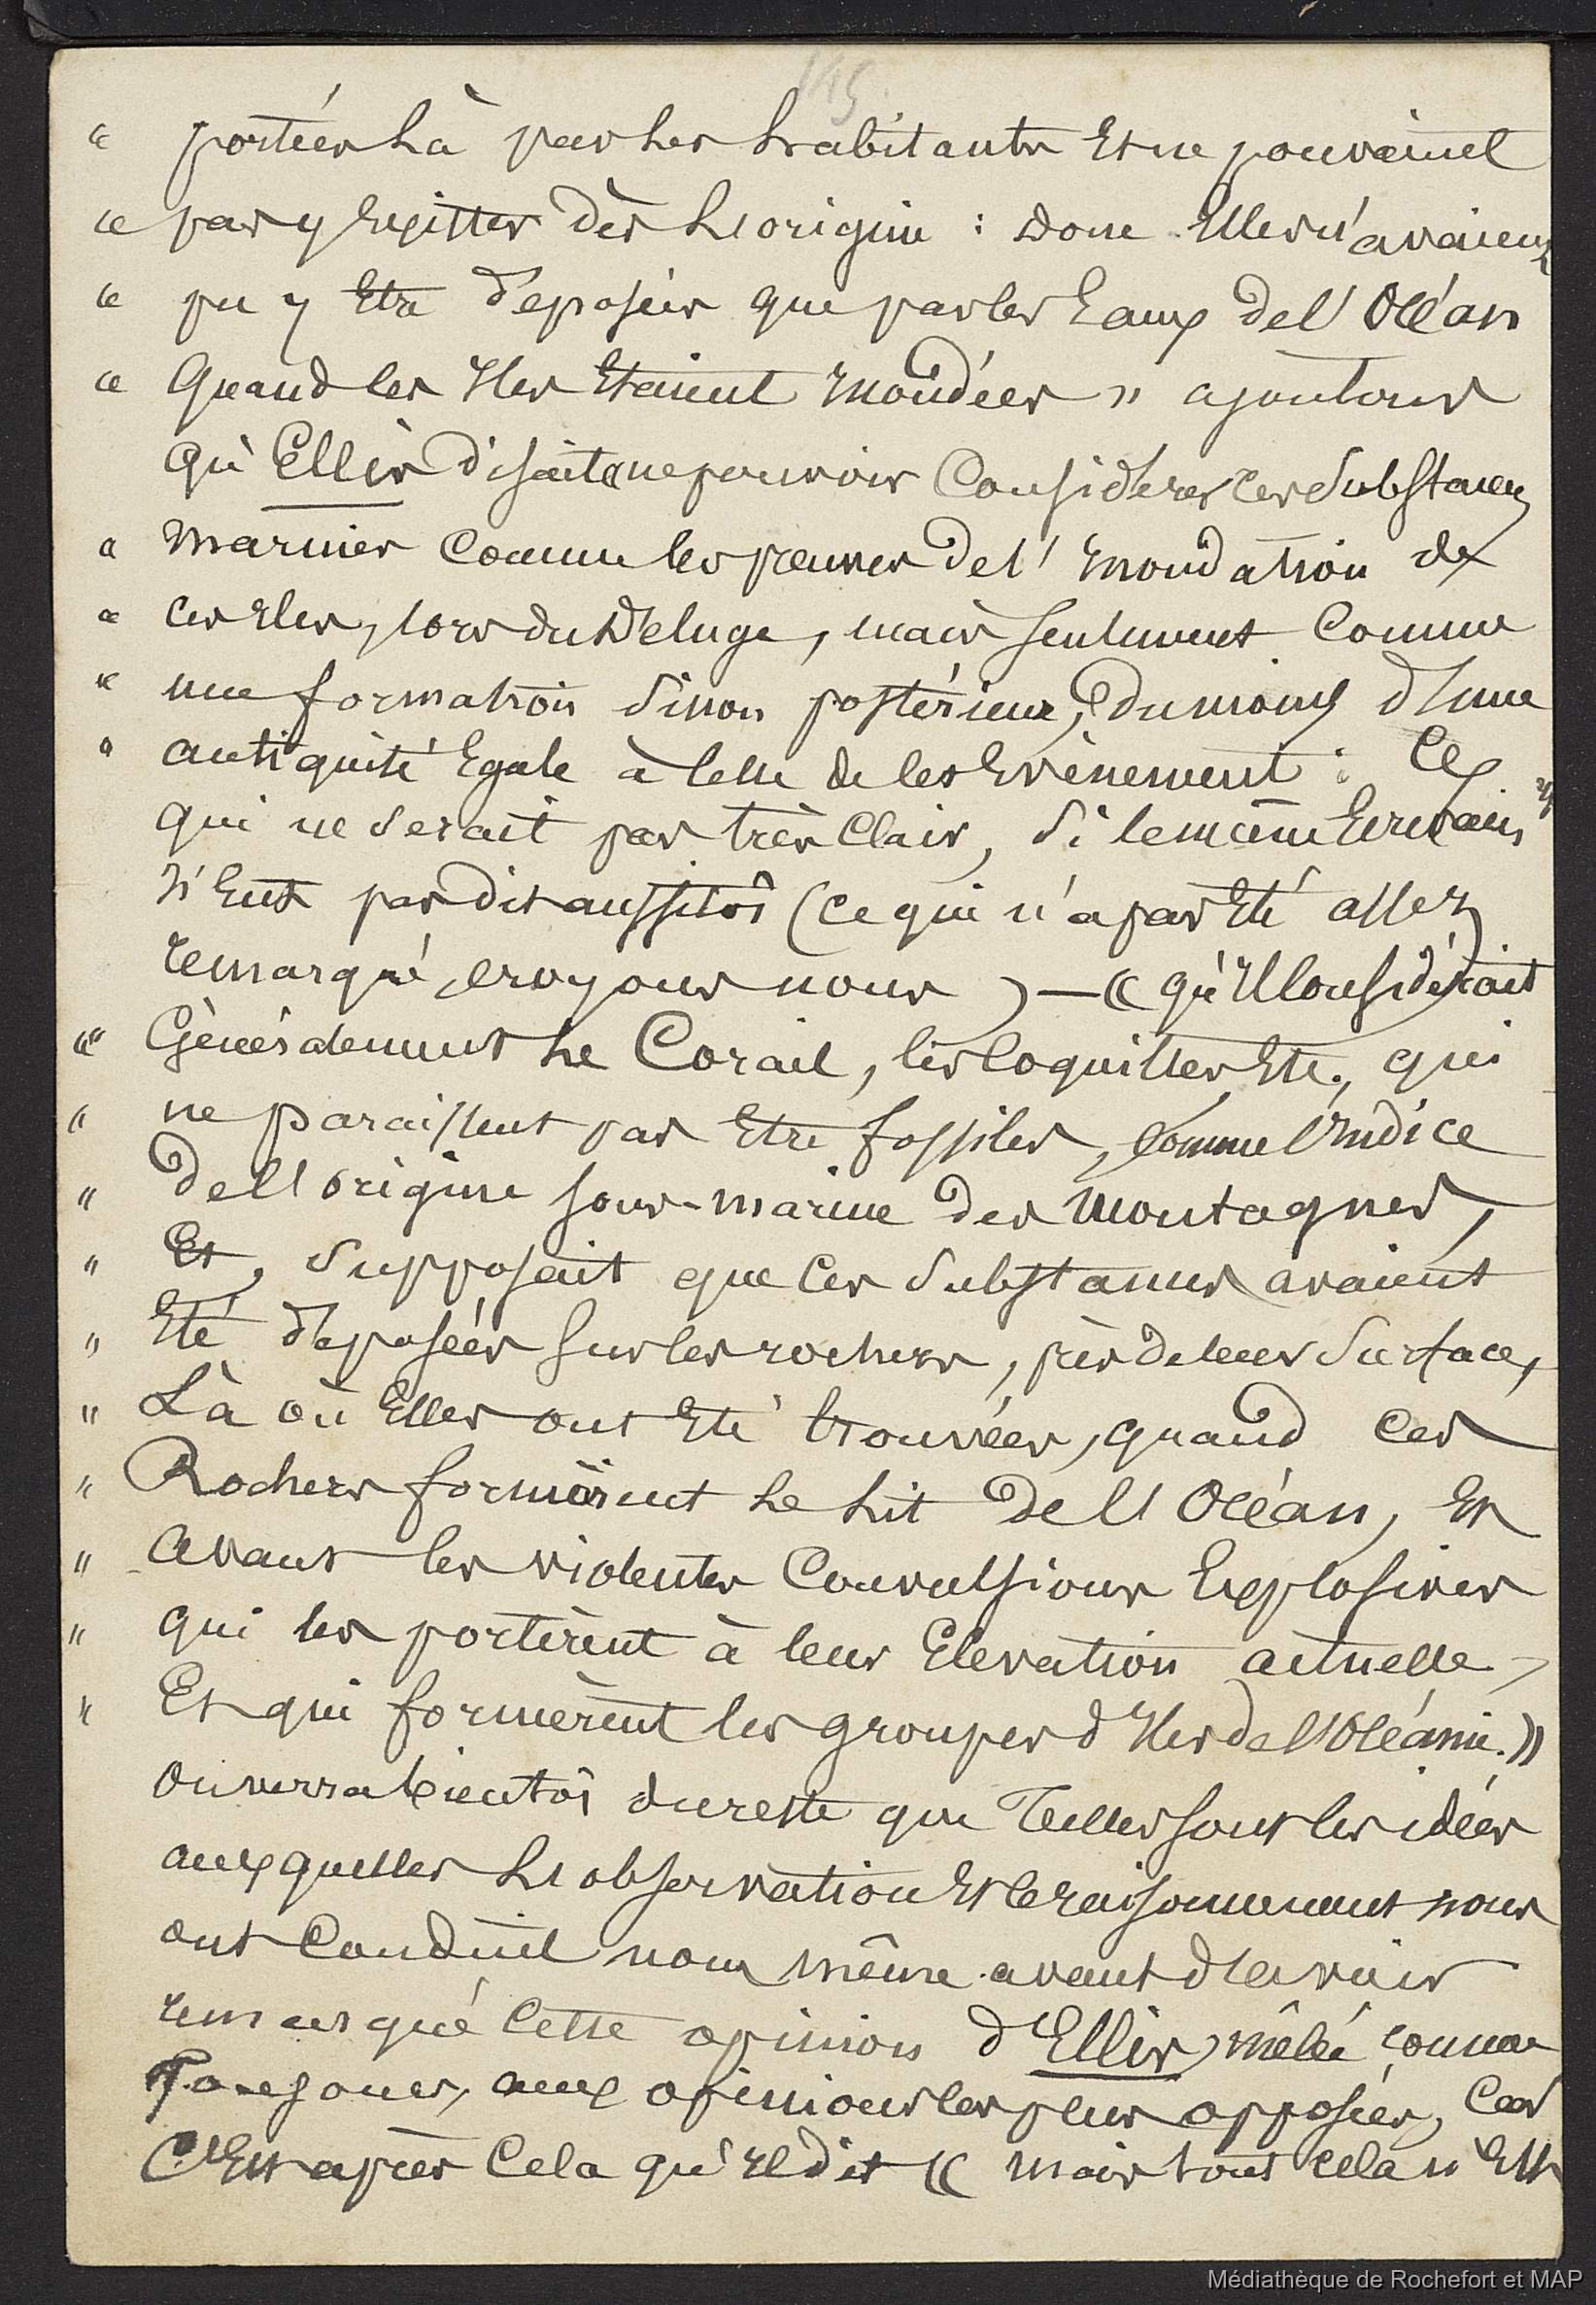 115.
" portées là par les habitants et ne pouvaient
" pas y exister dès l'origine : donc elles n'avaient
" pu y être déposées que par les eaux de l'Océan
" quand les Iles étaient inondées » ajoutons
qu'Ellis disait ne pouvoir considérer ces substances
" marines comme les preuves de l'inondation de
" ces Iles, lors du Déluge, mais seulement comme
" une formation sinon postérieure, du moins d'une
" antiquité égale à celle de cet Evènement : Ce
qui ne serait pas très clair, si le même Ecrivain
n'eut pas dit aussitôt (ce qui n'a pas été assez
remarqué, croyons nous) — « qu'Il considérait
" Généralement le Corail, les Coquilles etc., qui
" ne paraissent pas être fossiles, comme l'indice
" de l'origine sous-marine des montagnes,
" Et, supposait que ces substances avaient
" Eté déposées sur les rochers, près de leur surface,
" Là où Elles ont été trouvées, quand ces
" Rochers formaient le lit de l'Océan, et
" avant les violentes Convulsions Explosives
" qui les portèrent à leur Elevation actuelle,
" Et qui formèrent les groupes d'Iles de l'Océanie. »
On verra bientôt du reste que Telles sont les idées
auxquelles l'observation et le raisonnement nous
ont conduit nous même avant d'avoir
remarqué cette opinion d'Ellis, mêlée comme
Toujours, aux opinions les plus opposées, car
C'est après cela qu'il dit « mais tout cela n'est
Médiathèque de Rochefort et MAP